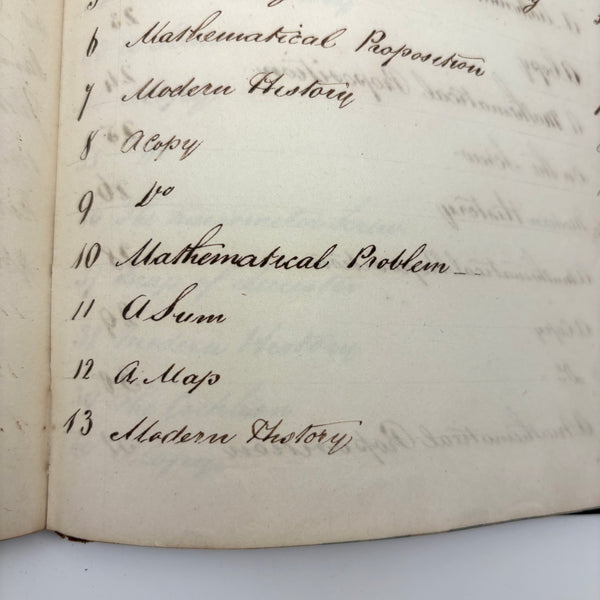 5
6 Mathematical Proposition
7 Modern History
8 A copy
9 Do
10 Mathematical Problem
11 A Sum
12 A Map
13 Modern History